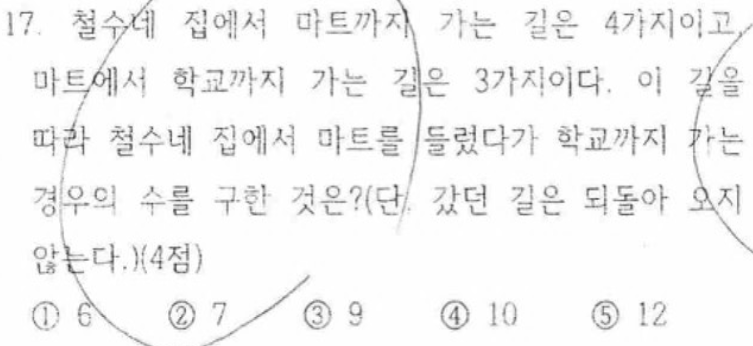 17. 철수네 집에서 마트까지 가는 길은 4가지이고,
마트에서 학교까지 가는 길은 3가지이다. 이 길을
따라 철수네 집에서 마트를 들렀다가 학교까지 가는
경우의 수를 구한 것은?(단, 갔던 길은 되돌아 오지
않는다.)(4점)
① 6 ② 7 ③ 9 ④ 10 ⑤ 12